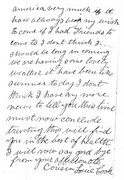 america very much & it
has always been my wish
to come if I had Friends to
come to I dont think I
should be long in coming
we are having some lovely
weather it have been like
summer to day I dont
think I have any more
news to tell you this time
must now conclude
trusting this will find
you in the best of health
I will now say good bye
from your affectionate
Cousin Louie Cook